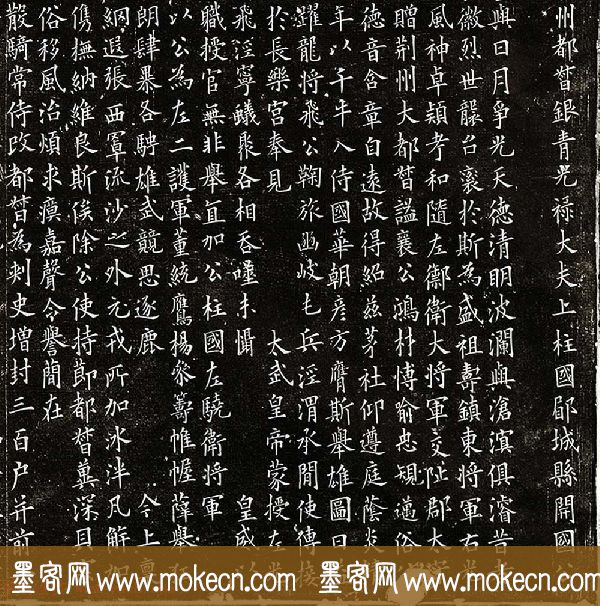 州都督銀青光祿大夫上柱國郧城縣開國
與日月爭光天德清明波瀾與滄溟俱濬昔
徽烈世襲台衮於斯為盛祖壽鎮東將軍右
風神卓穎考和隨左禦衛大將軍交阯郡太
贈荆州大都督謚襄公鴻朴博俞忠規邁俗
德音含章自遠故得紹茲茅社仰遵庭蔭
年以千牛入侍國華朝彦方膺斯舉雄圖日
躍龍將飛公鞠旅豳岐屯兵涇渭承間使傳接
於長樂宮奉見 太武皇帝蒙授左
飛淫寧蟻聚各相吞噬未懾 皇威以
職授官無非舉直加公柱國左驍衛將軍
以公為左二護軍董統鷹揚參籌帷幄薛舉
朗肆暴各騁雄武競思逐鹿 今上
網遐張西罩流沙之外元戎所加冰泮凡
儁撫納維良斯俟除公使持節都督冀深貝
俗移風治煩求瘼嘉聲令譽簡在
散騎常侍改都督為刺史增封三百户并前
墨客网 www.mokecn.com 墨客网 www.mokecn.com